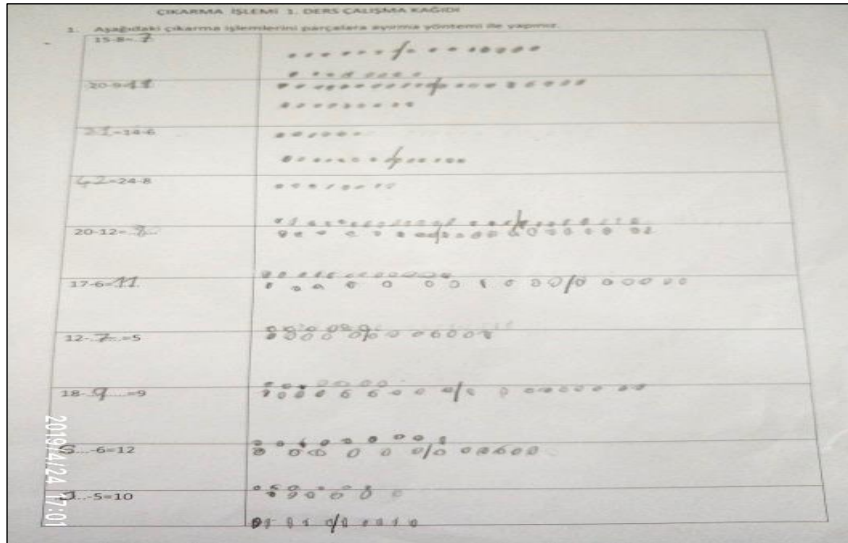 ÇIKARMA İŞLEMİ 1. DERS ÇALIŞMA KAĞIDI
1. Aşağıdaki çıkarma işlemlerini parçalara ayırma yöntemi ile yapınız.
15-8=.7
20-9=11
=14-6
=24-8
20-12=
17-6=11
12-.7...=5
18-.9...=9
...-6=12
...-5=10
2019/4/24 17:01